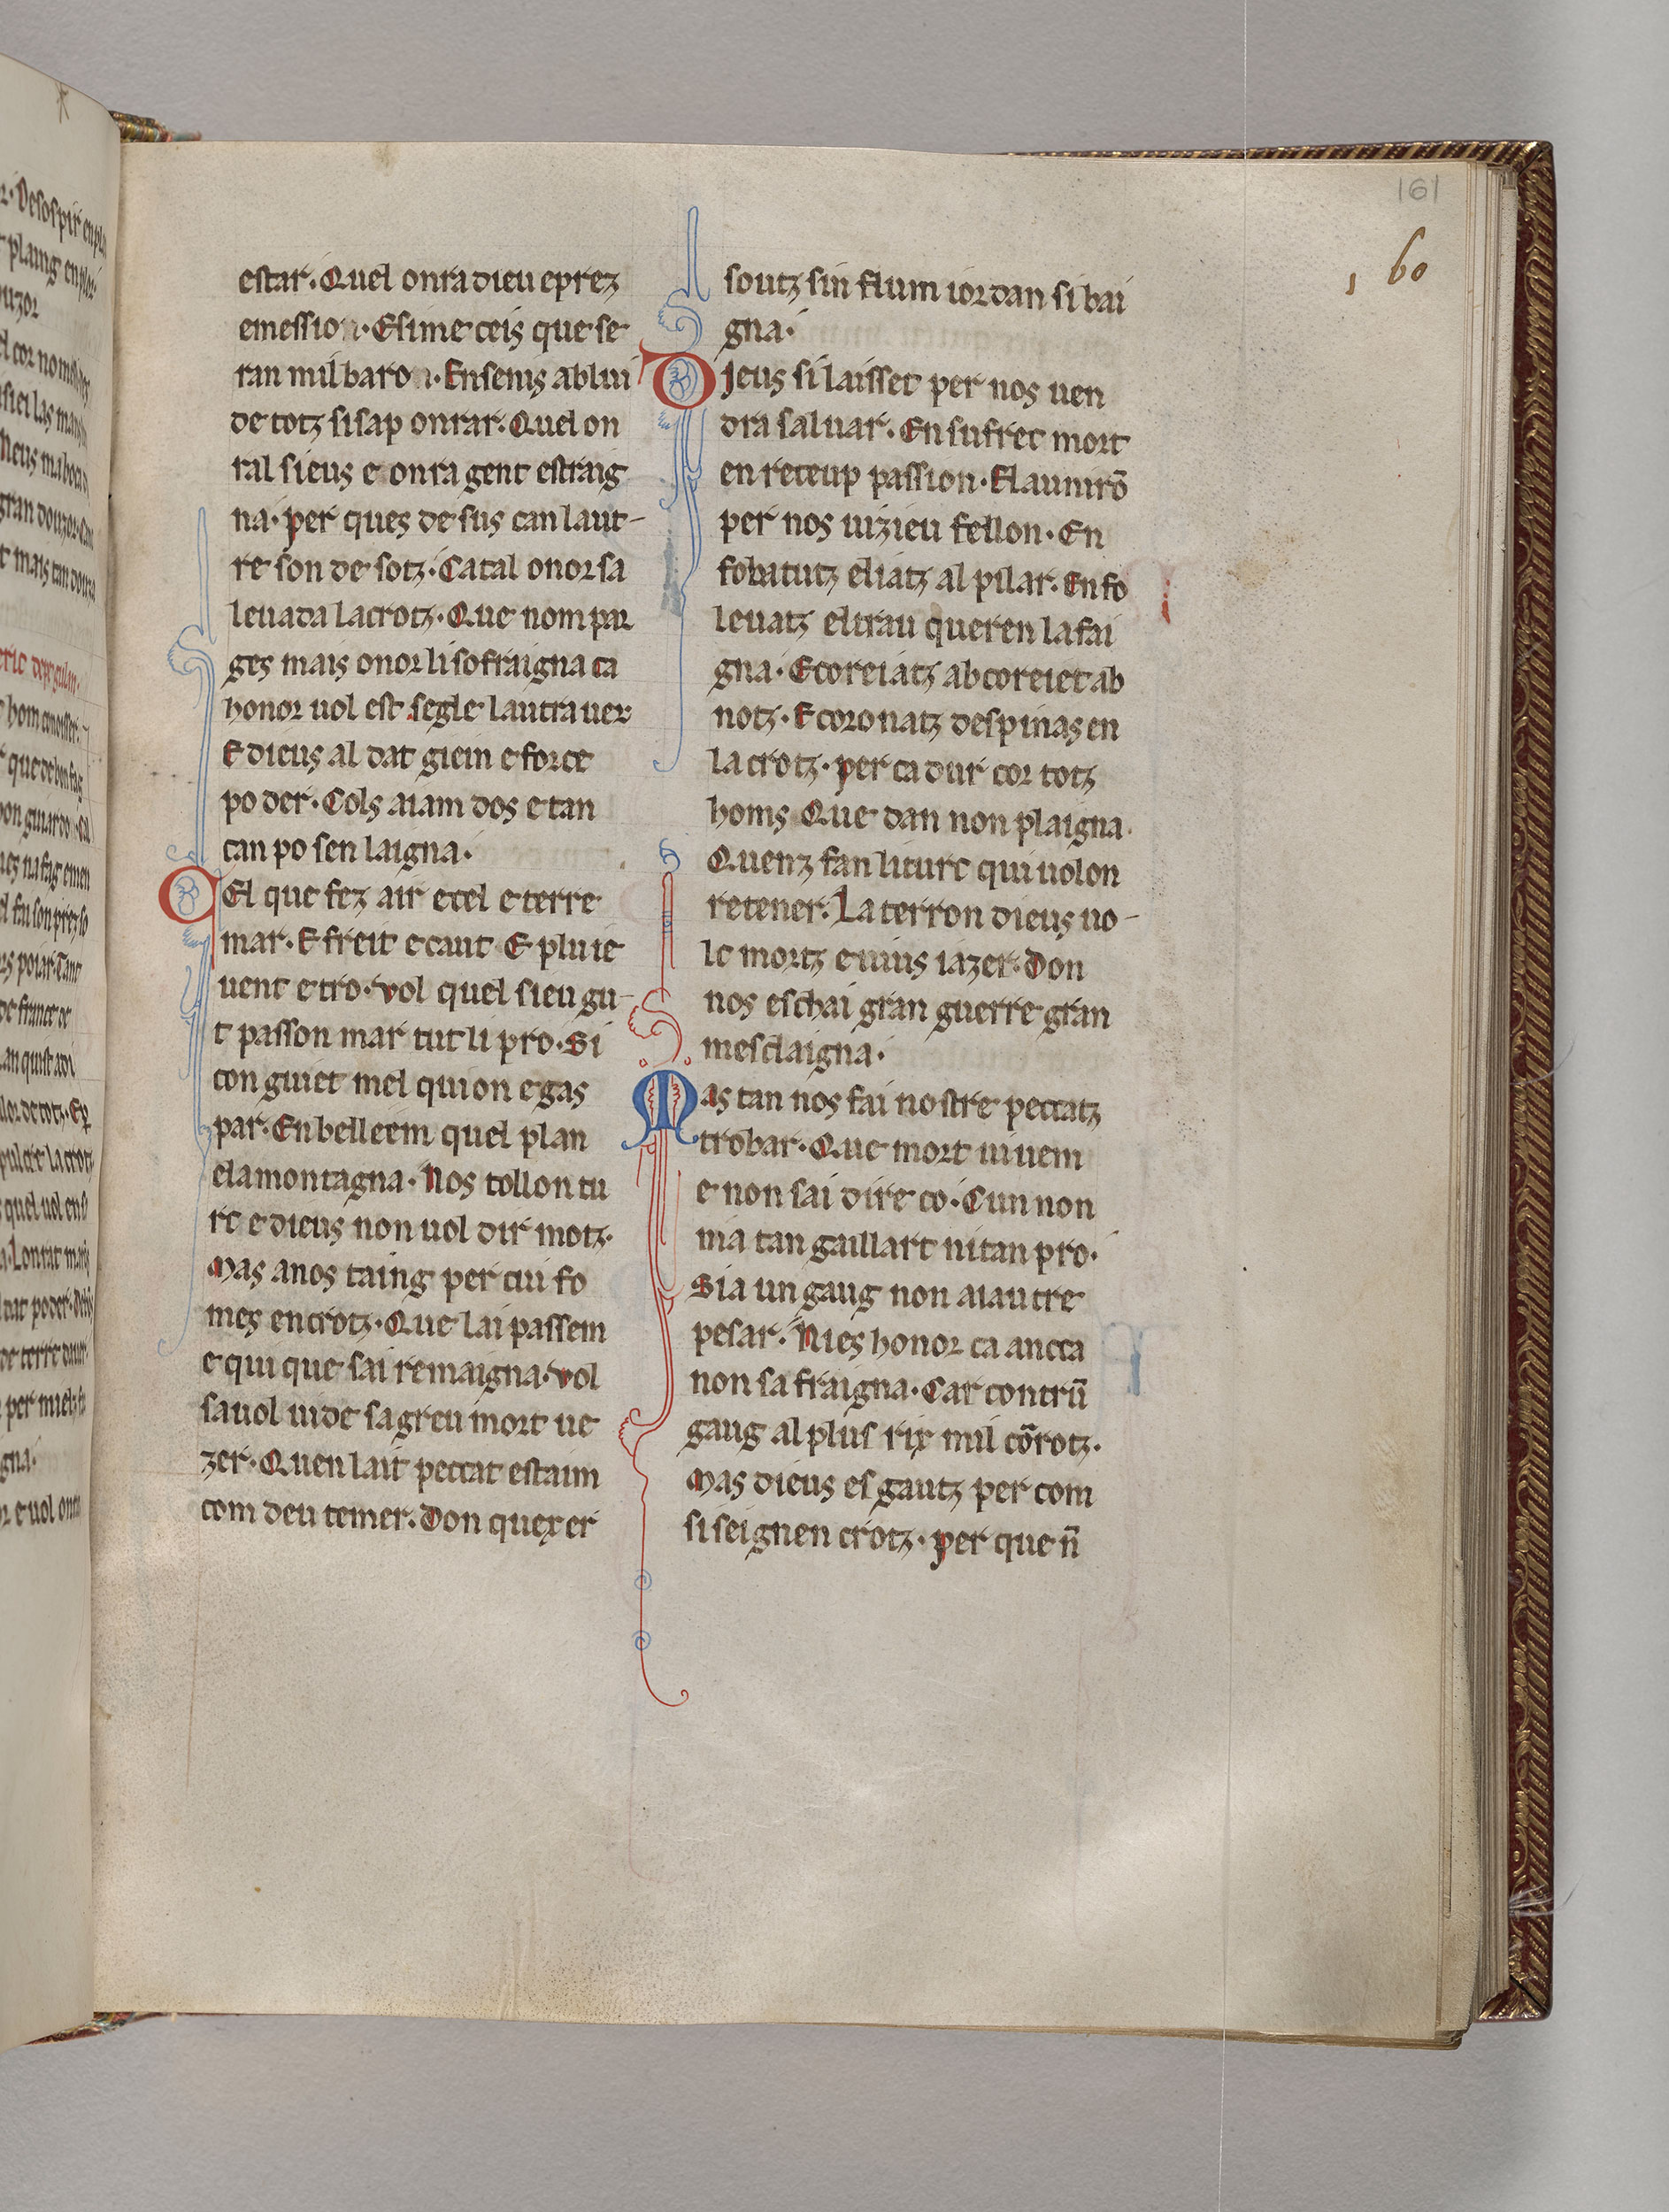 161
160
estar. Quel onra dieu e prez
e messio . E sim e ceis que se
ran mil baro . Ensems ab lui
de totz si sap onrar. Quel on
ral sieus e onra gent estraig
na. per ques de sus can laut-
re son de sotz. Ca tal onor sa
levada la crotz. Que nom par
ges mais onor li sofraigna ca
honor vol est segle lautra ver
E dieus al dat giein e force
poder. Cols aiam dos e tan
can po sen laigna.
Cel que fez air e cel e terre
mar. E freit e caut E pluie
vent e tro. vol quel sieu gu-
it passon mar tut li pro. Si
con guiet mel quion e gas
par. En belleem quel plan
e la montagna. Nos tollon tu
rc e dieus non vol dir motz.
Mas a nos taing per cui fo
mes en crotz. Que lai passem
e qui que sai remaigna. vol
sa vol vide sa greu mort ve
zer. Quen lait peccat estaim
com deu temer. Don quexer
soutz sin flum iordan si bai
gna.
Dieus si laisset per nos ven
dra salvar. En sufret mort
en receup passion. E launirō
per nos iuzieu fellon. En
fo batutz e liatz al pilar. En fo
levatz el trau quer en la fai
gna. E coreiatz ab coreiet ab
notz. E coronatz despinas en
la crotz. per ca dur cor totz
homs Que dan non plaigna.
Quenz fan li turc qui volon
retener. La terr on dieus vo-
lc mortz e vius iazer. Don
nos eschai gran guerre gran
mesclaigna.
Mas tan nos fai nostre peccatz
trobar. Que mort vivem
e non sai dire co. Cun non
ina tan gaillart ni tan pro.
Si a un gaug non aiautre
pesar. Ni es honor ca ancta
non safraigna. Car contrū
gaug al plus rix mil cōrotz.
Mas dieus es gautz per com
si seign en crotz. per que ñ